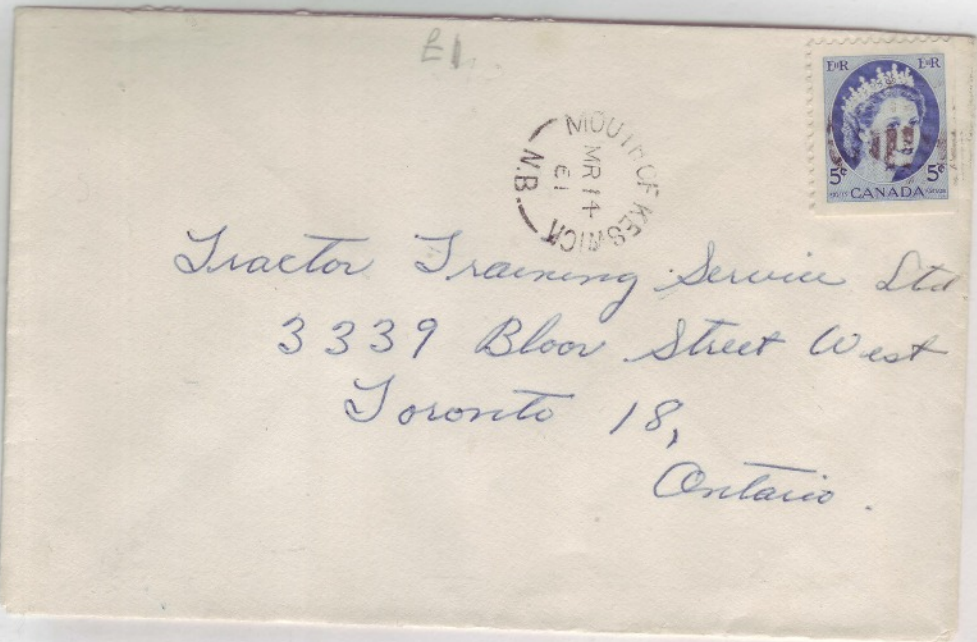 E1
E II R E II R
MOUTH OF KESWICK
MR 14
61
N.B.
5¢ 5¢
CANADA
Tractor Training Service Ltd
3339 Bloor Street West
Toronto 18,
Ontario.